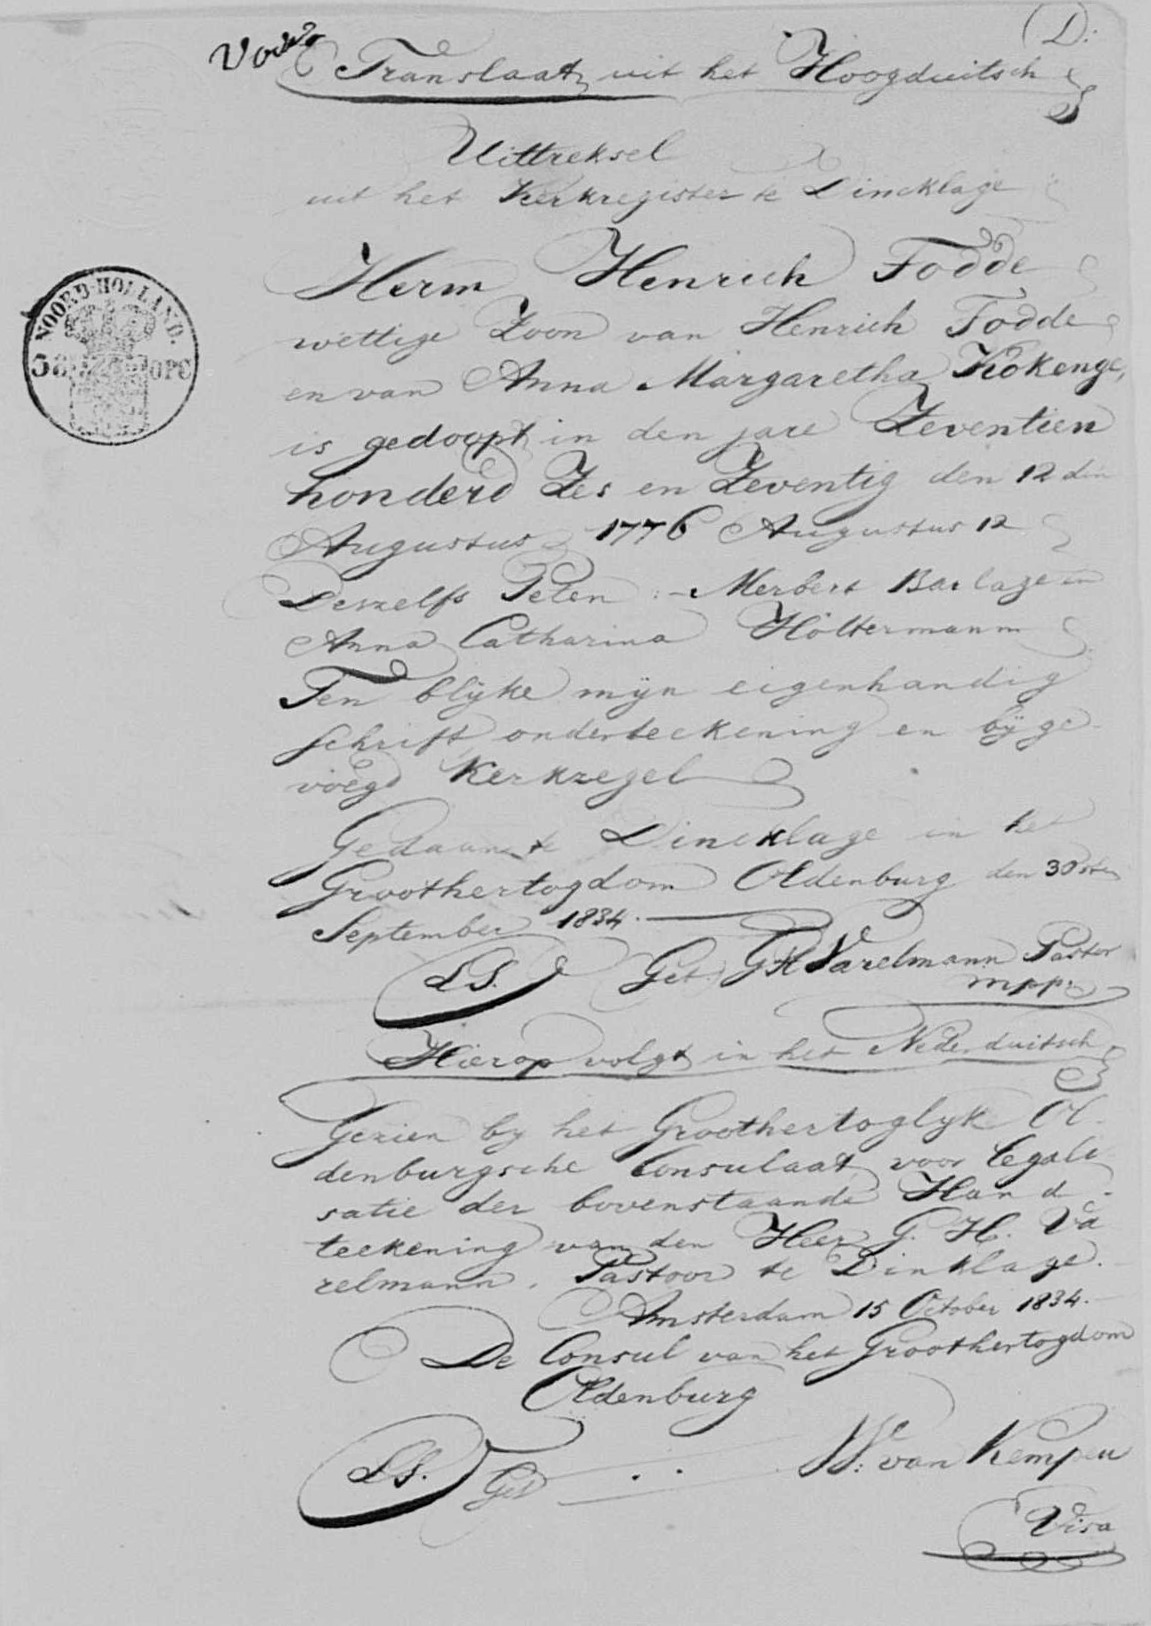 (D:
Translaat uit het Hoogduitsch
Uittreksel
uit het Kerkregister te Dincklage
Herm Henrich Fodde
wettige Zoon van Henrich Fodde
en van Anna Margaretha Kokenge,
is gedoopt in den jare Zeventien
honderd Zes en Zeventig den 12 den
Augustus 1776 Augustus 12
Deszelfs Peten :- Merbert Barlage en
Anna Catharina Höltermann
Ten blijke mijn eigenhandig
schrift, onderteekening en bijge-
voegd Kerkzegel
Gedaan te Dincklage in het
Groothertogdom Oldenburg den 30sten
September 1834.
LS. Get. GH Varelmann Pastor
mpp.
Hierop volgt in het Nederduitsch
Gezien by het Groothertoglyk Ol-
denburgsche Consulaat voor legali
satie der bovenstaande Hand-
teekening van den Heer G. H. Va
relmann. Pastoor te Dinklage.
Amsterdam 15 October 1834.
De Consul van het Groothertogdom
Oldenburg
LS. Get W: van Kempen
Visa
NOORD-HOLLAND.
OPC